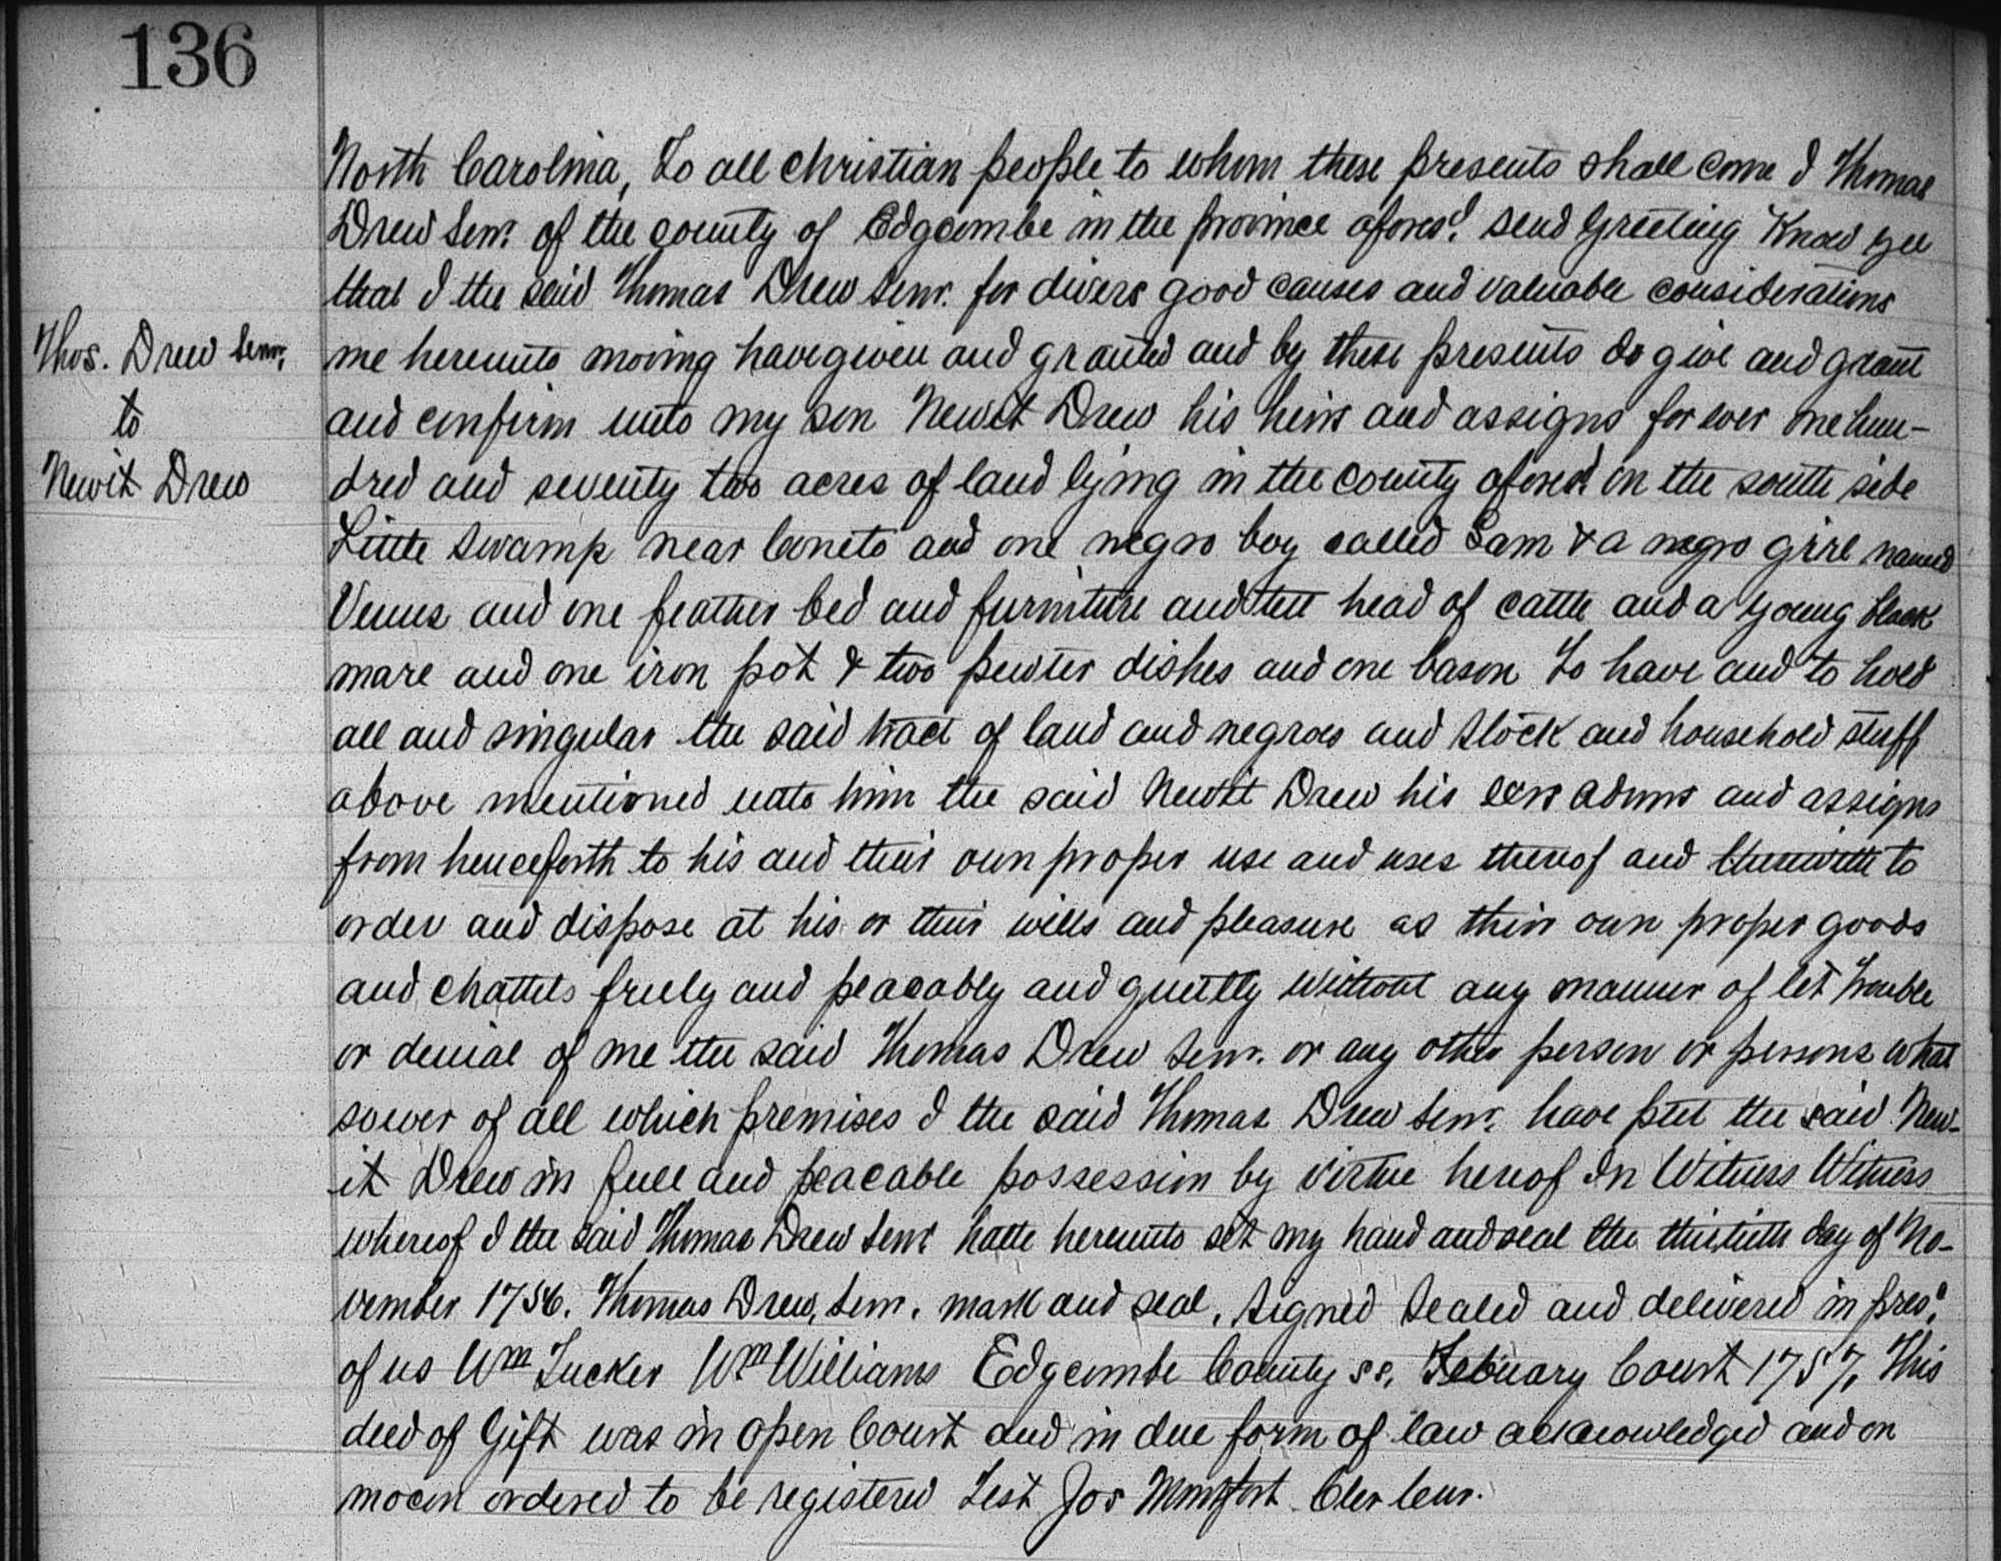 136
North Carolina, To all christian people to whom these presents shall come I Thomas
Drew Senr. of the county of Edgcombe in the province aforesd. send Greeting Know yee
that I the said Thomas Drew Senr. for divers good causes and valuable considerations
Thos. Drew Senr.
me hereunto moving have given and granted and by these presents do give and grant
to
and confirm unto my son Newit Drew his heirs and assigns for ever one hun-
Newit Drew
dred and seventy two acres of land lying in the county aforesd. on the south side
Little Swamp near Coneto and one negro boy called Sam & a negro girl named
Venus and one feather bed and furniture and ten head of cattle and a young black
mare and one iron pot & two pewter dishes and one bason To have and to hold
all and singular the said tract of land and negroes and stock and household stuff
above mentioned unto him the said Newit Drew his exrs admrs and assigns
from henceforth to his and their own proper use and uses thereof and therewith to
order and dispose at his or their wills and pleasure as their own proper goods
and chattels freely and peacably and quietly without any manner of let trouble
or denial of me the said Thomas Drew Senr. or any other person or persons what
soever of all which premises I the said Thomas Drew Senr. have put the said New-
it Drew in full and peacable possession by virtue hereof In Witness Witness
whereof I the said Thomas Drew Senr hath hereunto set my hand and seal the thirtieth day of No-
vember 1756. Thomas Drew, Senr. mark and seal. Signed Sealed and delivered in presd.
of us Wm Tucker Wm Williams Edgcombe County ss. Febuary Court 1757, This
deed of Gift was in open Court and in due form of law acknowledged and on
mocon ordered to be registered Test Jos Montfort Cler Cur.